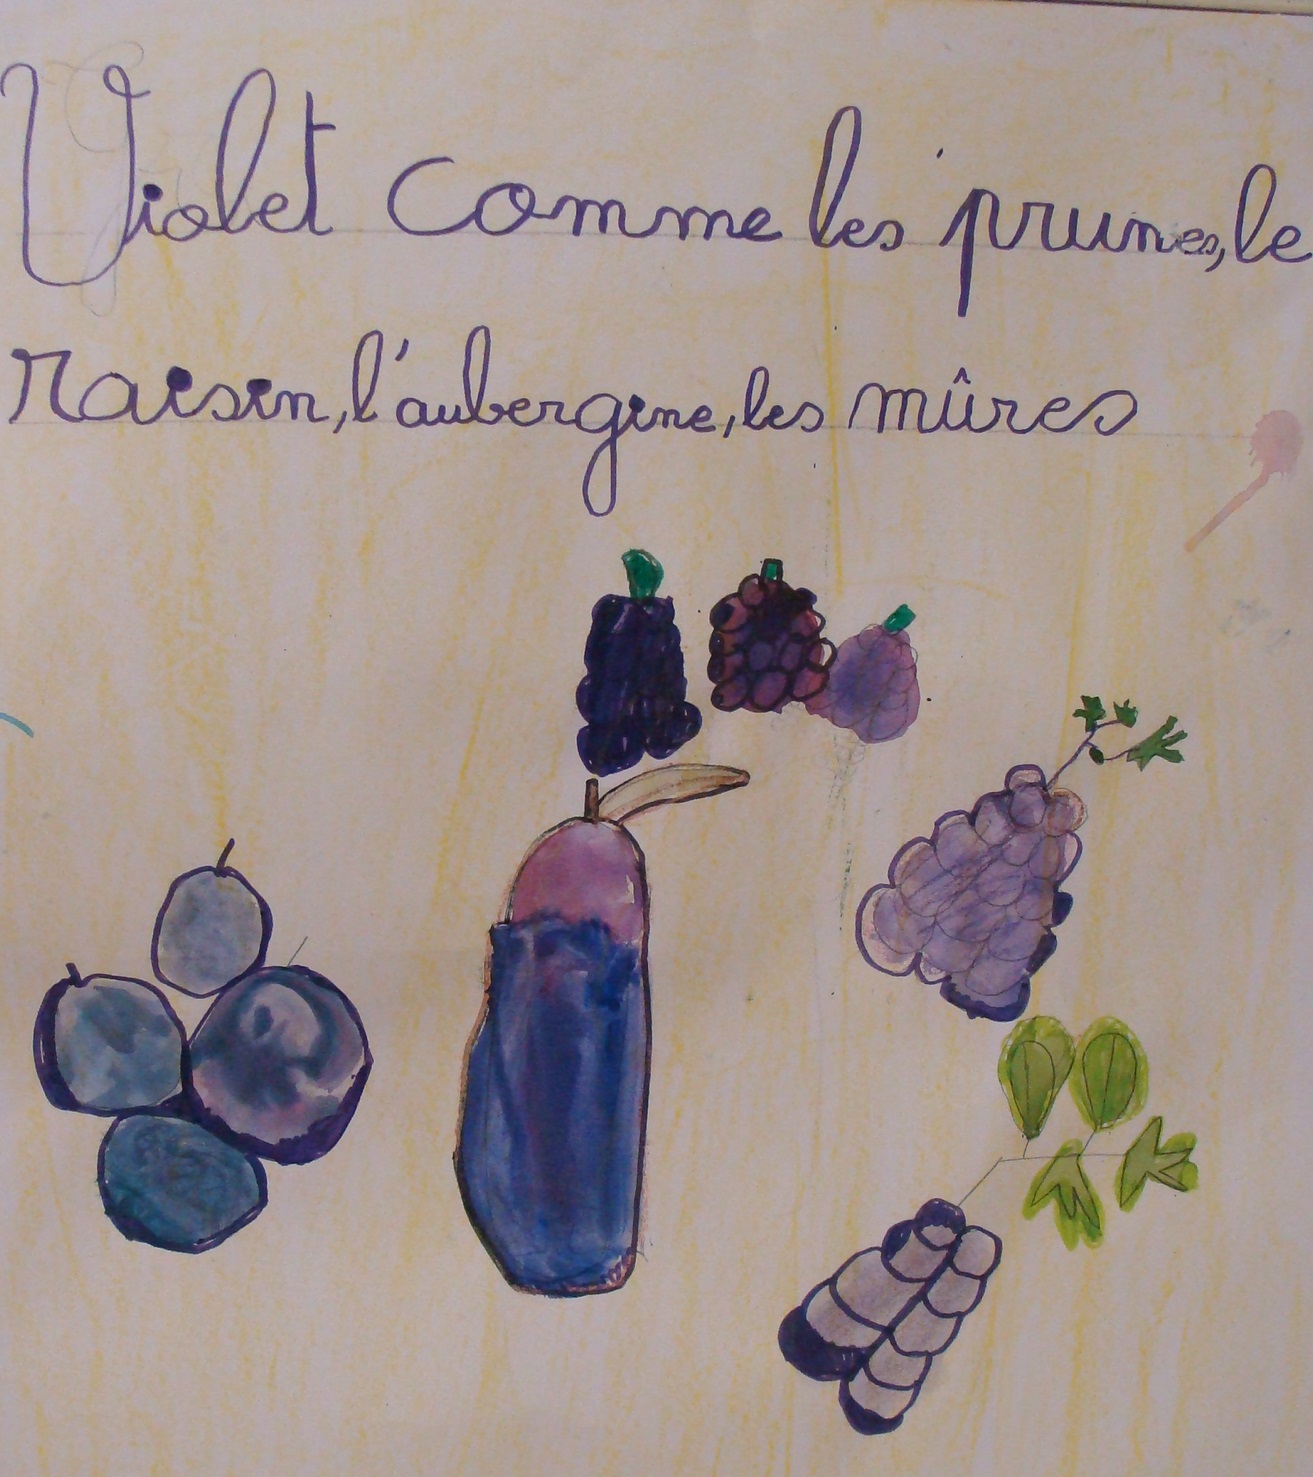 Violet comme les prunes, le
raisin, l'aubergine, les mûres